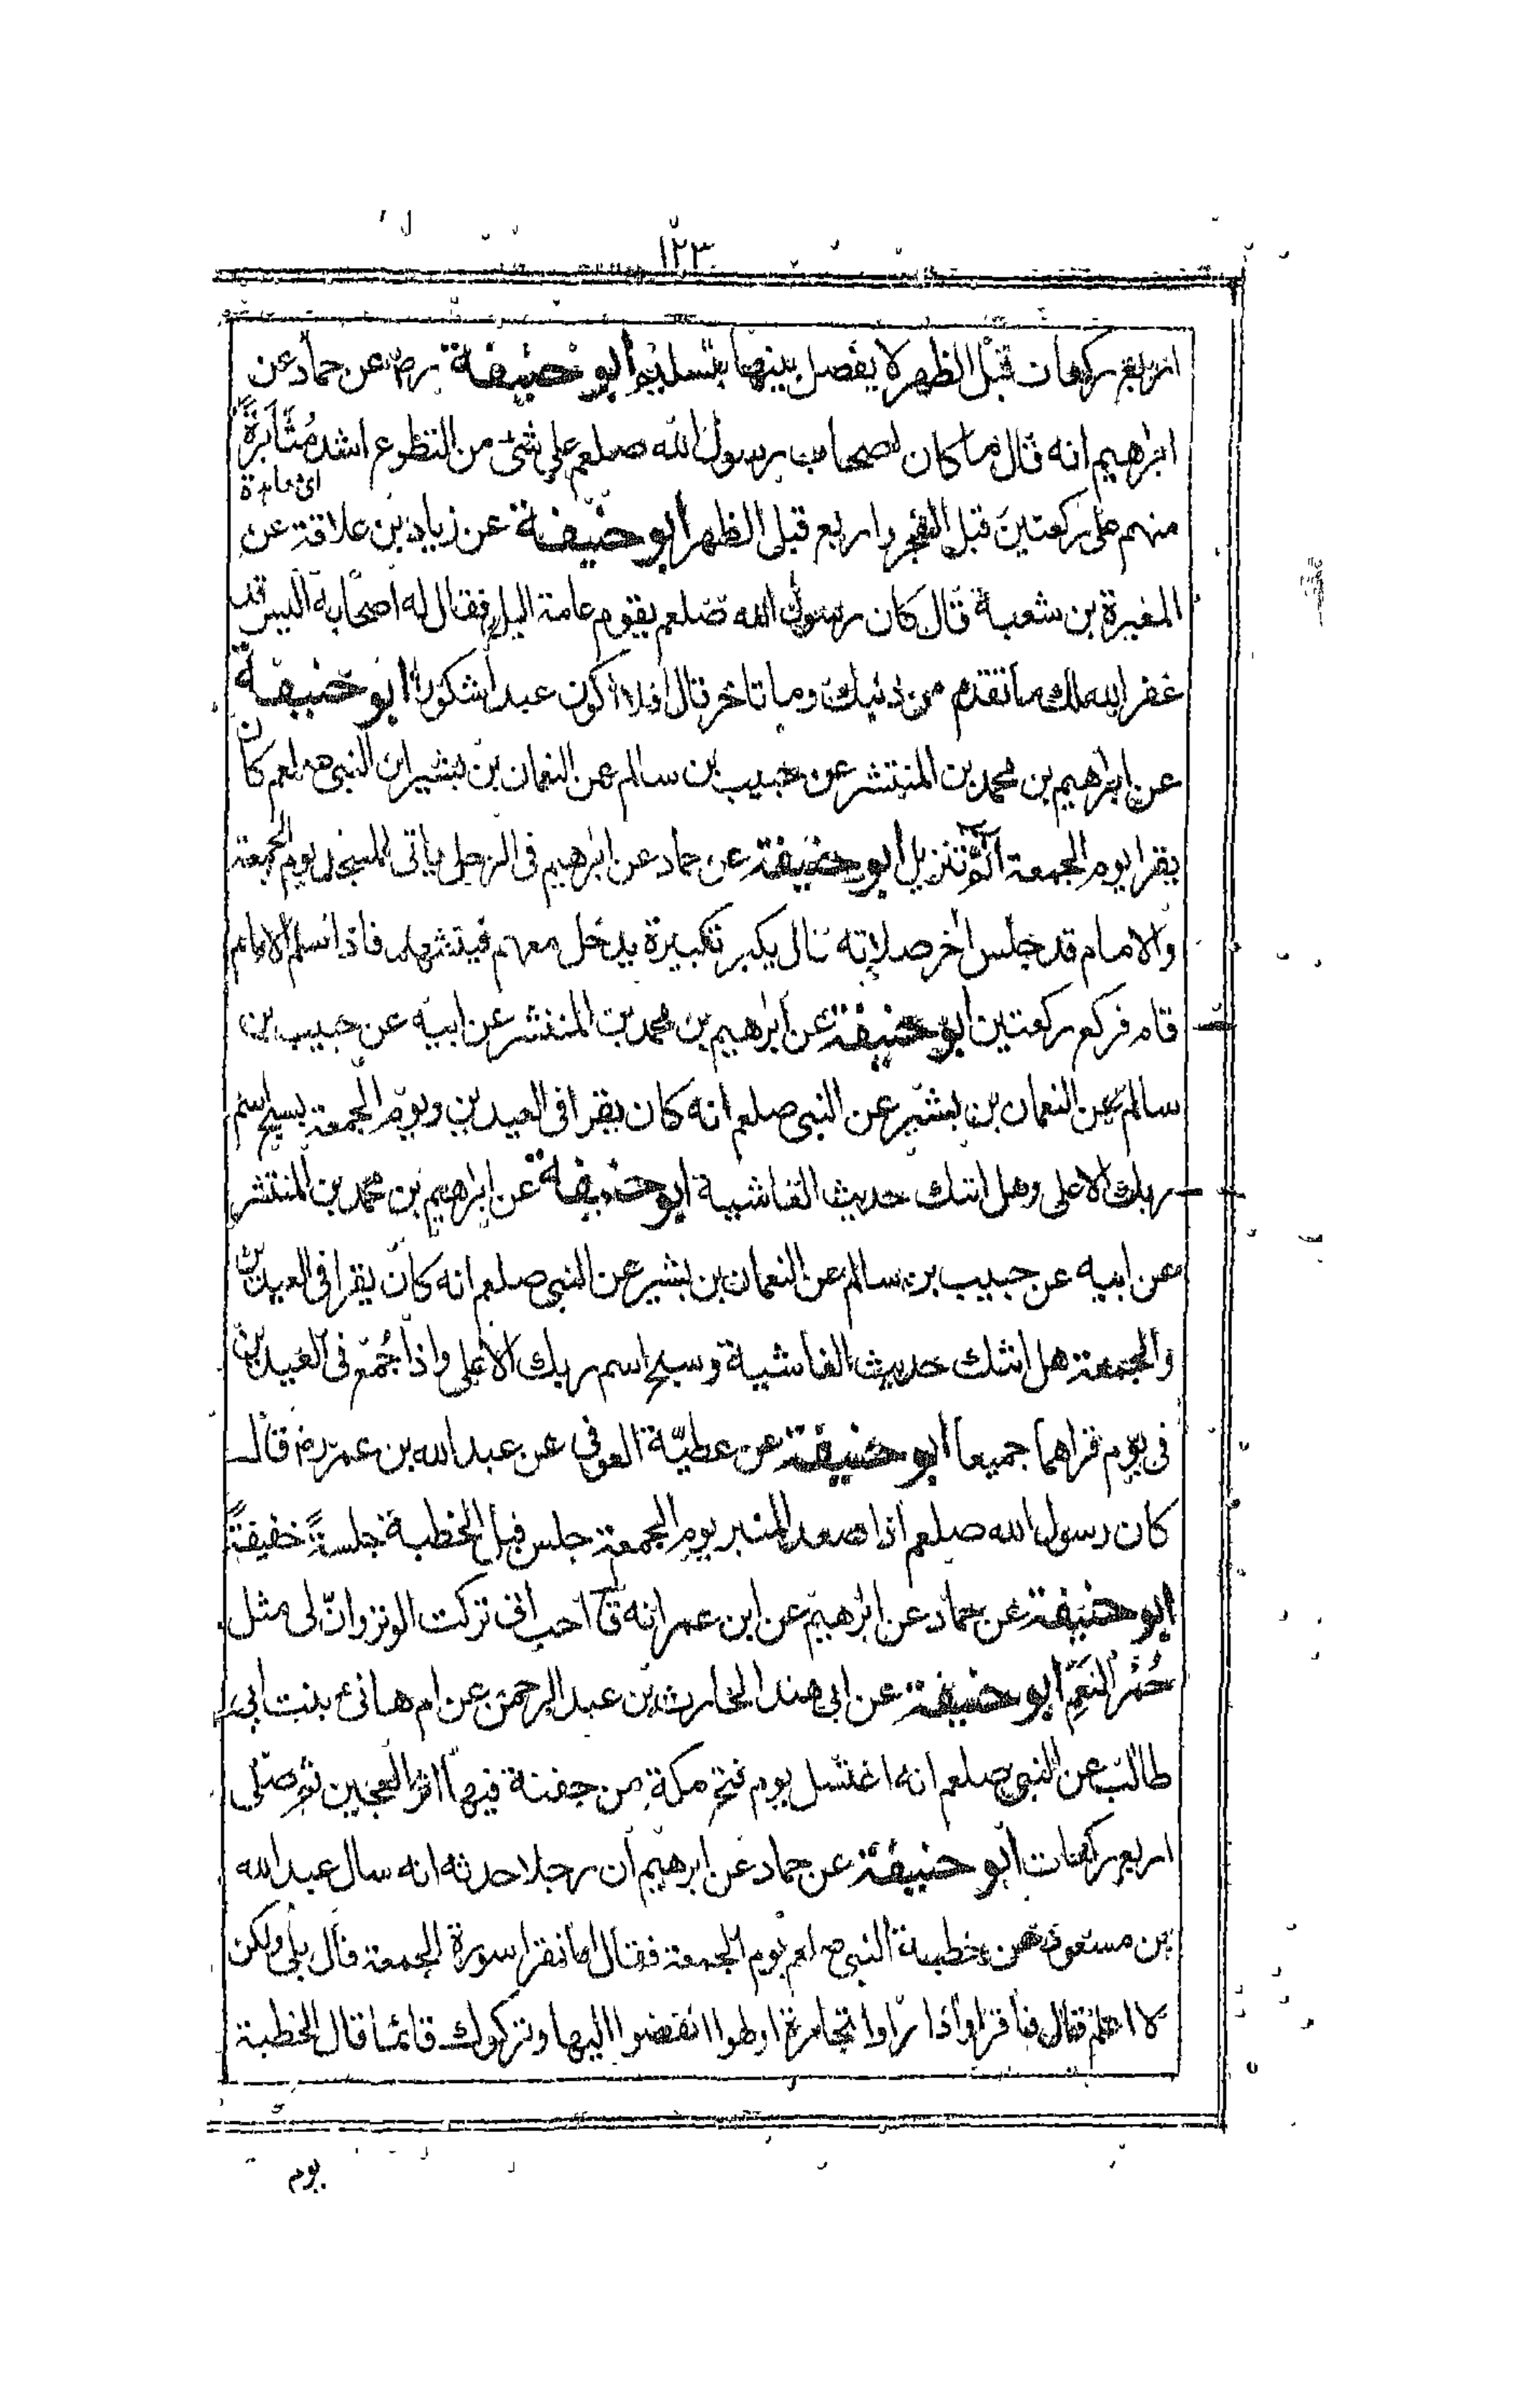 ١٢٣
اربع ركعات قبل الظهر لا يفصل بينها بتسليم ابو حنيفة رض عن حماد عن
ابرهيم انه قال ما كان اصحاب رسول الله صلعم على شئ من التطوع اشد مُثَابَرَةً
منهم على ركعتين قبل الفجر واربع قبل الظهر ابو حنيفة عن زياد بن علاقة عن
المغيرة بن شعبة قال كان رسول الله صلعم يقوم عامة اليل فقال له اصحابه اليس قد
غفر الله لك ما تقدم من ذنبك وما تاخر قال افلا اكون عبدا شكورا ابو حنيفة
عن ابرهيم بن محمد بن المنتشر عن حبيب بن سالم عن النعمان بن بشير ان النبى صلعم كان
يقرا يوم الجمعة آلم تنزيل ابو حنيفة عن حماد عن ابرهيم فى الرجل ياتى المسجد يوم الجمعة
والامام قد جلس اخر صلاته قال يكبر تكبيرة يدخل معهم فيتشهد فاذا سلم الامام
قام فركع ركعتين ابو حنيفة عن ابرهيم بن محمد بن المنتشر عن ابيه عن حبيب بن
سالم عن النعمان بن بشير عن النبى صلعم انه كان يقرا فى العيدين ويوم الجمعة بسبح اسم
ربك الاعلى وهل اتىك حديث الغاشية ابو حنيفة عن ابرهيم بن محمد بن المنتشر
عن ابيه عن حبيب بن سالم عن النعمان بن بشير عن النبى صلعم انه كان يقرا فى العيدين
والجمعة هل اتىك حديث الغاشية وسبح اسم ربك الاعلى واذا جُمّع فى العيدين
فى يوم قراهما جميعا ابو حنيفة عن عطيّة العوفى عن عبد الله بن عمر رض قال
كان رسول الله صلعم اذا صعد المنبر يوم الجمعة جلس قبل الخطبة جلسةً خفيفةً
ابو حنيفة عن حماد عن ابرهيم عن ابن عمر انه قال ما احب انى تركت الوتر وانّ لى مثل
حُمْرُ النَعَمِ ابو حنيفة عن ابى هند الحارث بن عبد الرحمن عن ام هانئ بنت ابى
طالب عن النبى صلعم انه اغتسل يوم فتح مكة من جفنة فيها اثر العجين ثم صلى
اربع ركعات ابو حنيفة عن حماد عن ابرهيم ان رجلا حدثه انه سال عبد الله
بن مسعود عن خطبة النبى صلعم يوم الجمعة فقال اما تقرا سورة الجمعة قال بلى ولكن
لا اعلم قال فاقرا واذا راوا تجارة اولهوا انفضوا اليها وتركوك قائما قال الخطبة
يوم